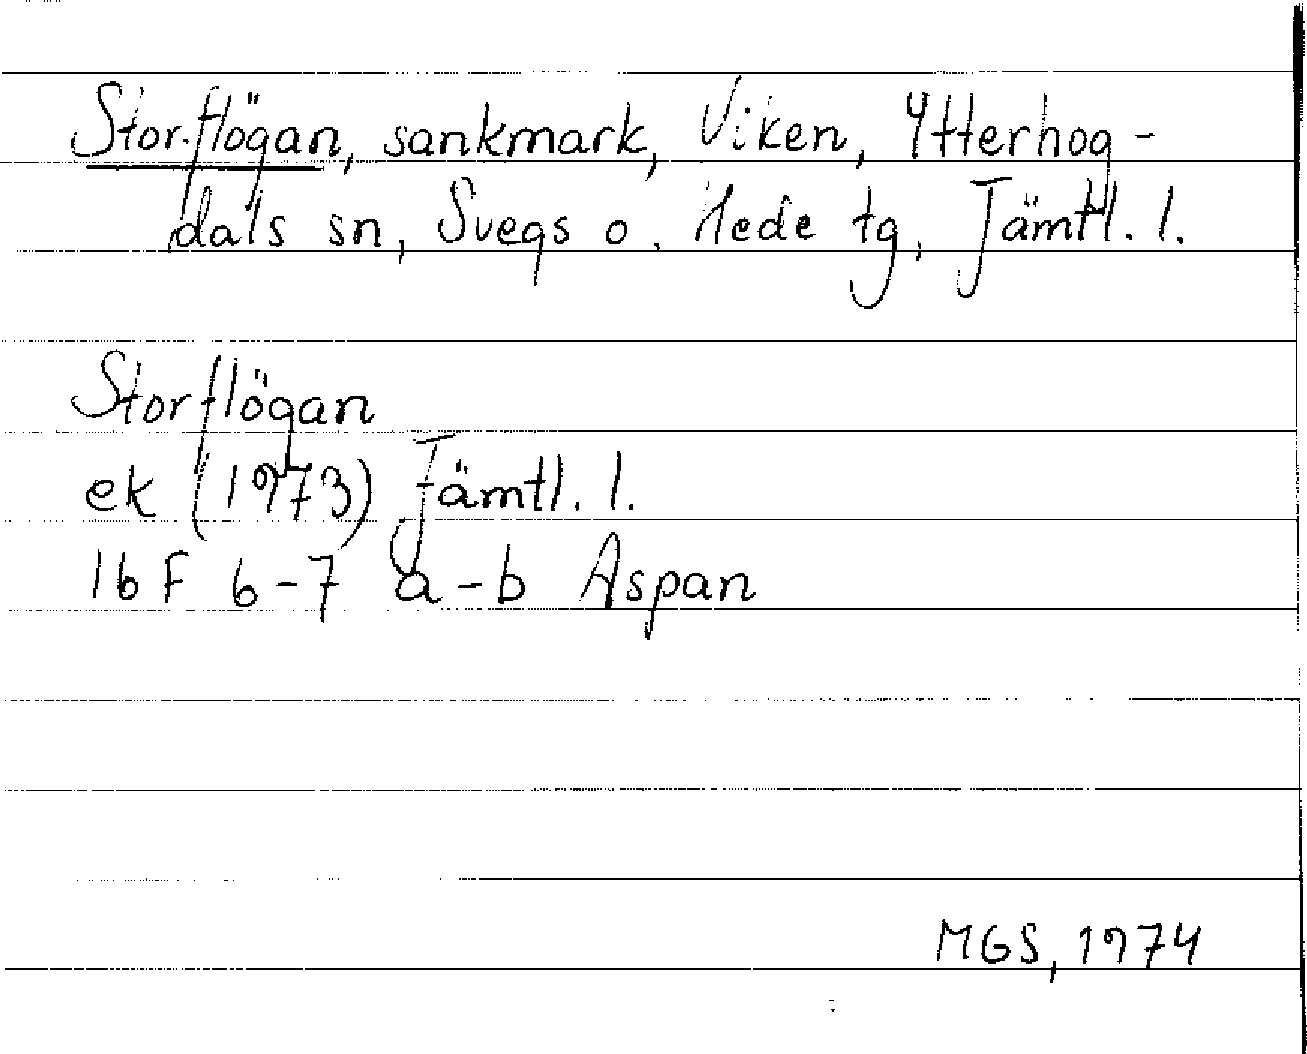 Storflögan, sankmark, Viken, Ytterhog-
dals sn, Svegs o. Hede tg, Jämtl. l.
Storflögan
ek (1973) Jämtl. l.
16 F 6-7 a-b Aspan
MGS, 1974